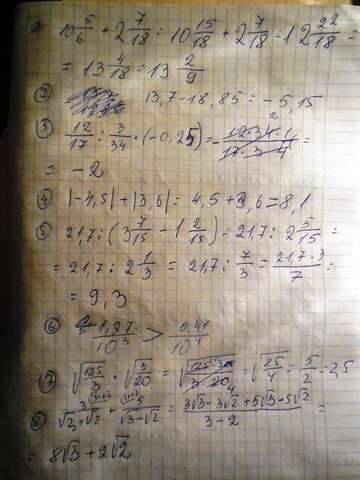 10 5/6 + 2 7/18 = 10 15/18 + 2 7/18 = 12 22/18 =
= 13 4/18 = 13 2/9
② 13,7 - 18,85 = -5,15
③ 12/17 : 3/34 · (-0,25) = - 12·34·1 / 17·3·4 =
= -2
④ |-4,5| + |3,6| = 4,5 + 3,6 = 8,1
⑤ 21,7 : (3 7/15 - 1 2/15) = 21,7 : 2 5/15 =
= 21,7 : 2 1/3 = 21,7 : 7/3 = 21,7·3 / 7 =
= 9,3
⑥ /10³ > /10⁴
⑦ √125/3 · √3/20 = √25·3 / 3·20 = √25/4 = 5/2 = 2,5
⑧ 3/√3+√2 + 5/√3-√2 = 3√3-3√2+5√3+5√2 / 3-2 =
= 8√3 + 2√2